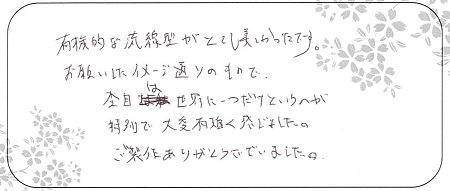 有機的な流線型がとても美しかったです。
お願いしたイメージ通りのもので、
全目は世界に一つだけというのが
特別で大変有難く感じました。
ご製作ありがとうございました。